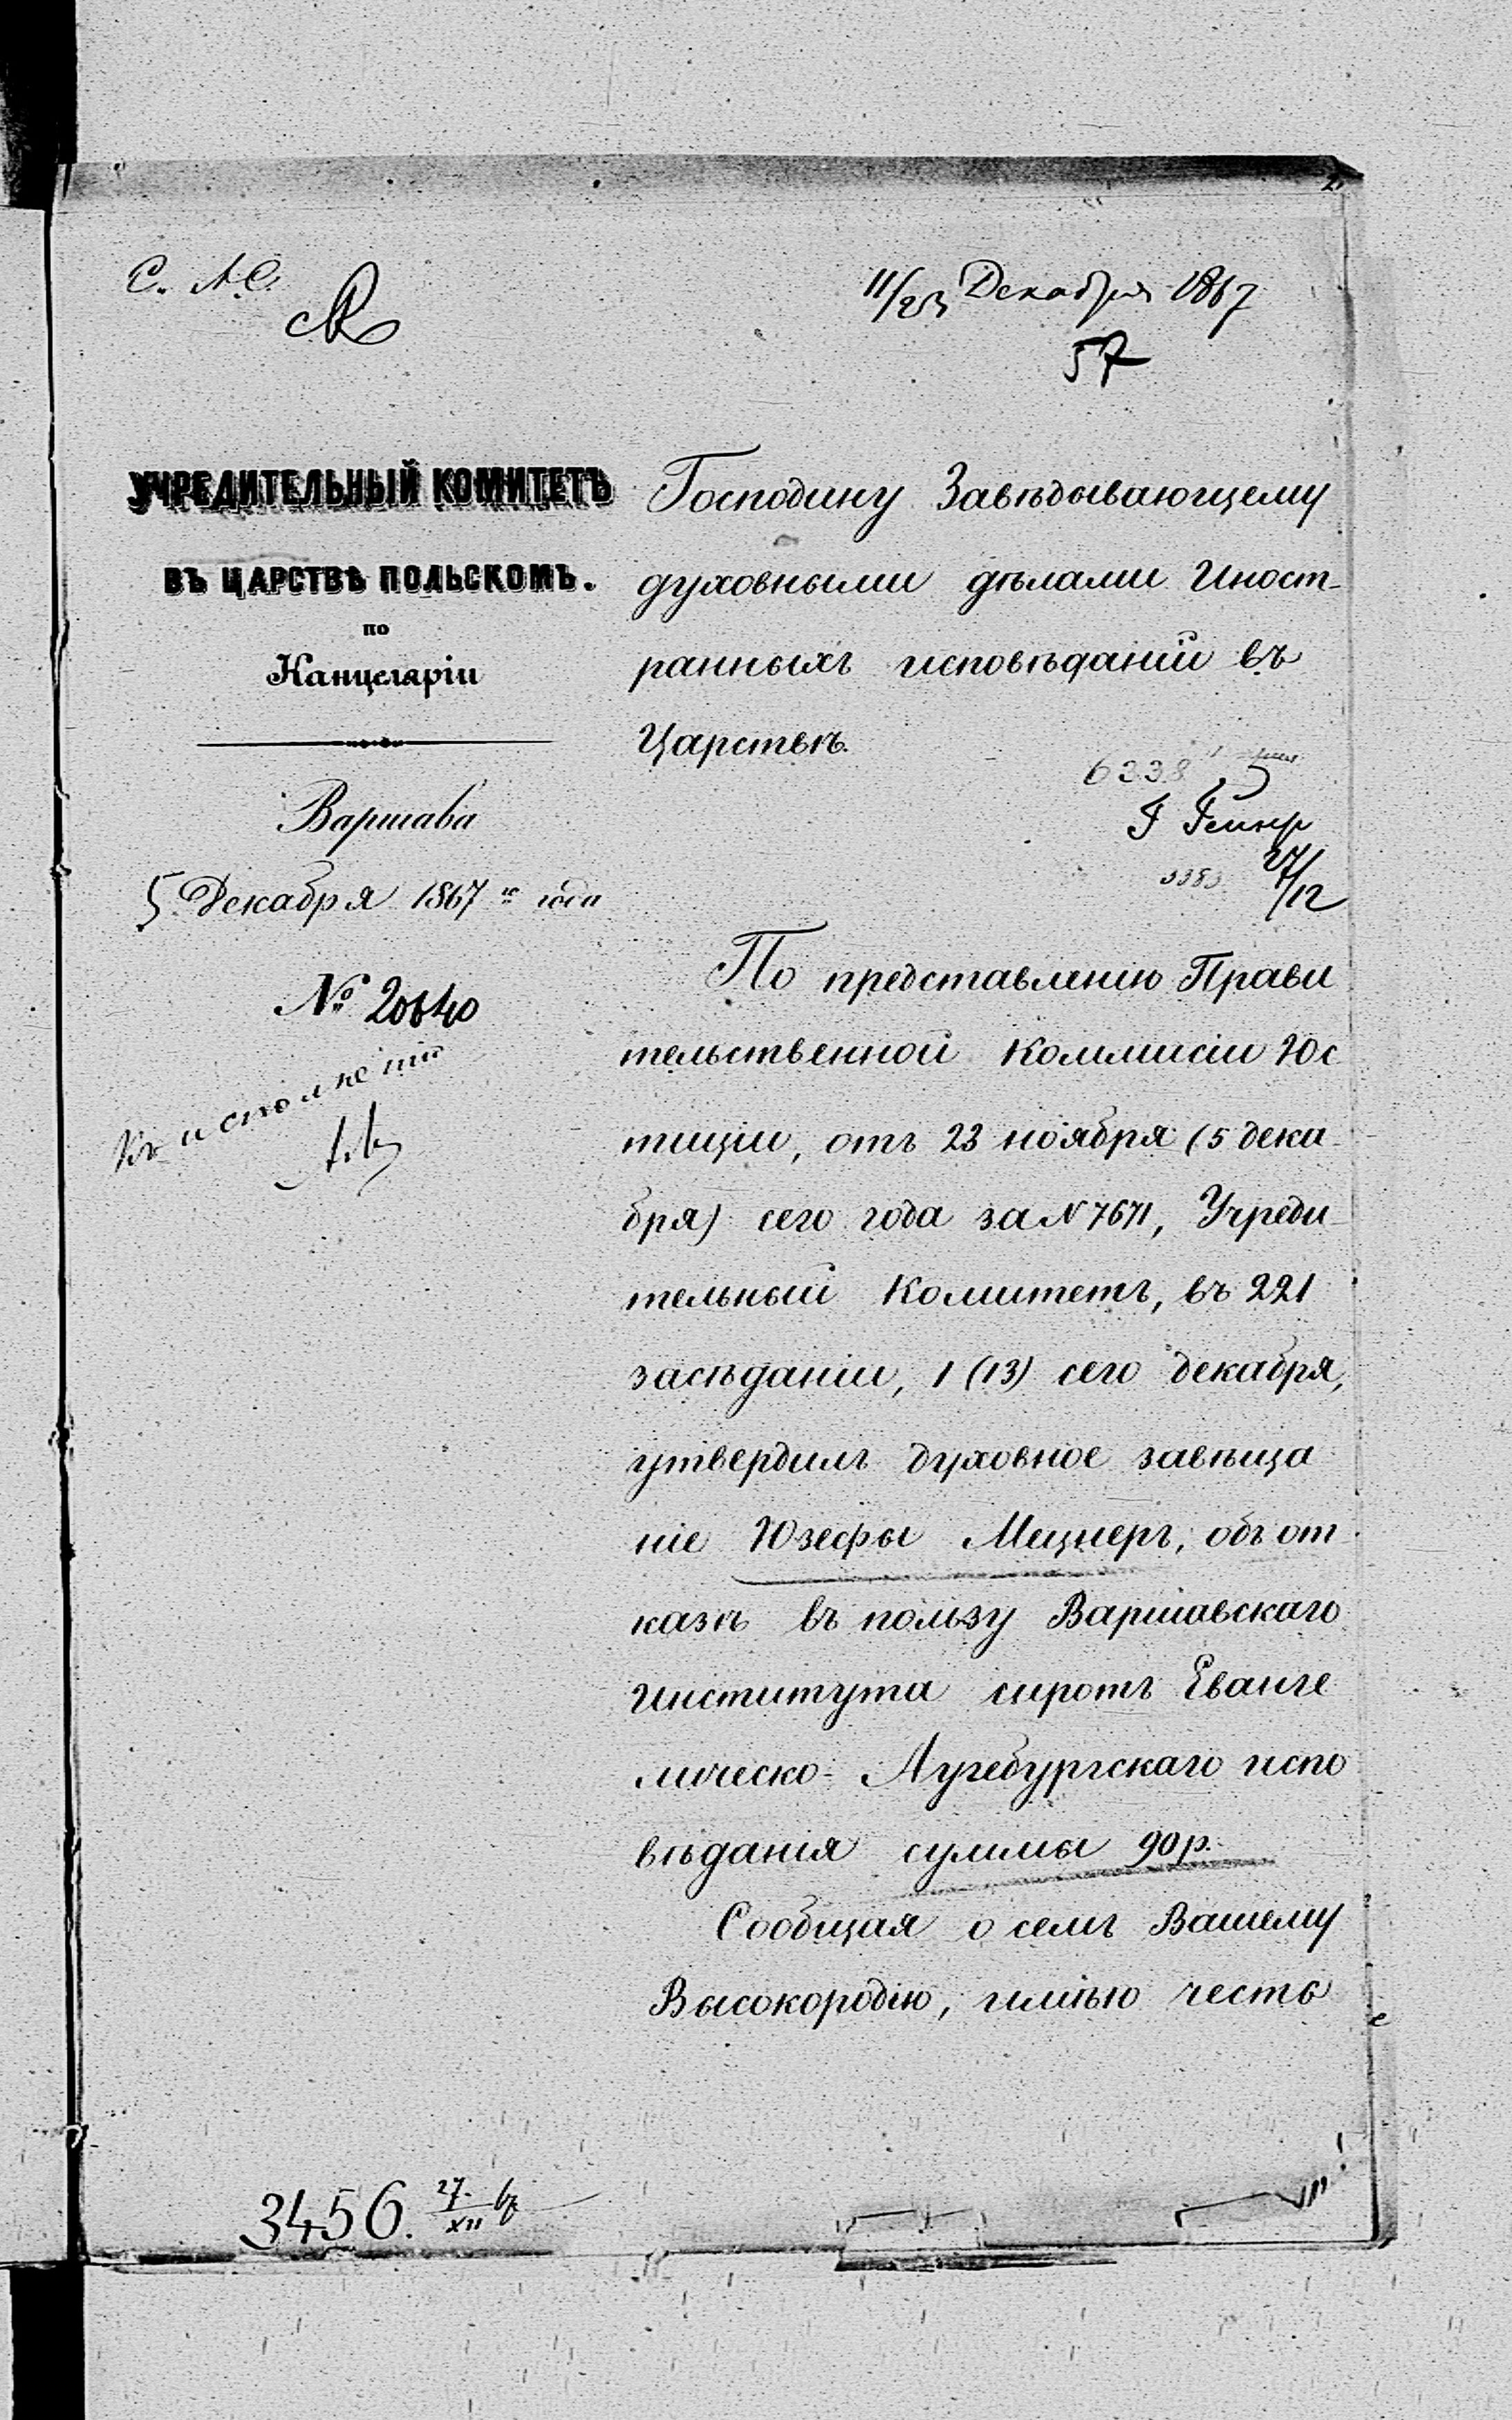 С. А. С.
11/23 Декабря 1867
57
УЧРЕДИТЕЛЬНЫЙ КОМИТЕТЪ
ВЪ ЦАРСТВѢ ПОЛЬСКОМЪ.
по
Канцеляріи
Варшава
5 Декабря 1867 го года
№ 20640
Къ исполненію
Господину Завѣдывающему
духовными дѣлами Иност-
ранныхъ исповѣданій въ
Царствѣ.
6238
Г
27/12
По представленію Прави
тельственной Коммисіи Юс
тиціи, отъ 23 ноября (5 дека-
бря) сего года за N 7671, Учреди-
тельный Комитетъ, въ 221
засѣданіи, 1 (13) сего декабря,
утвердилъ духовное завѣща
ніе Юзефы Мицнеръ, объ от-
казѣ въ пользу Варшавскаго
Института сиротъ Еванге
лическо-Аугсбургскаго испо
вѣданія суммы 90 р.
Сообщая о семъ Вашему
Высокородію, имѣю честь
3456. 27/XII 67